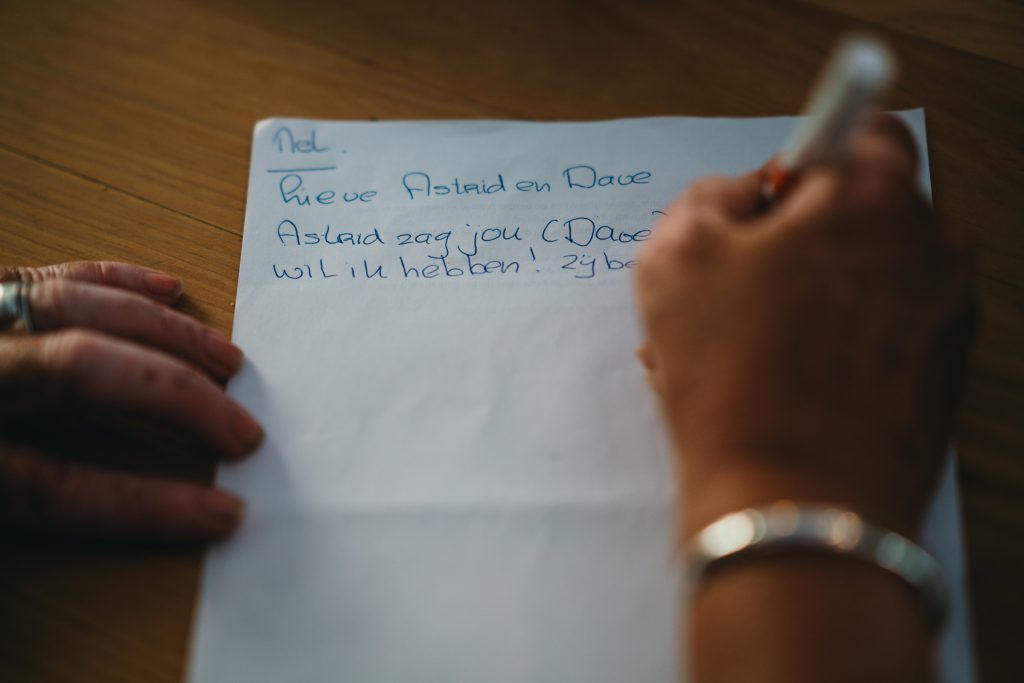 Nel.
Lieve Astrid en Dave
Astrid zag jou (Dave)
wil ik hebben! zij be